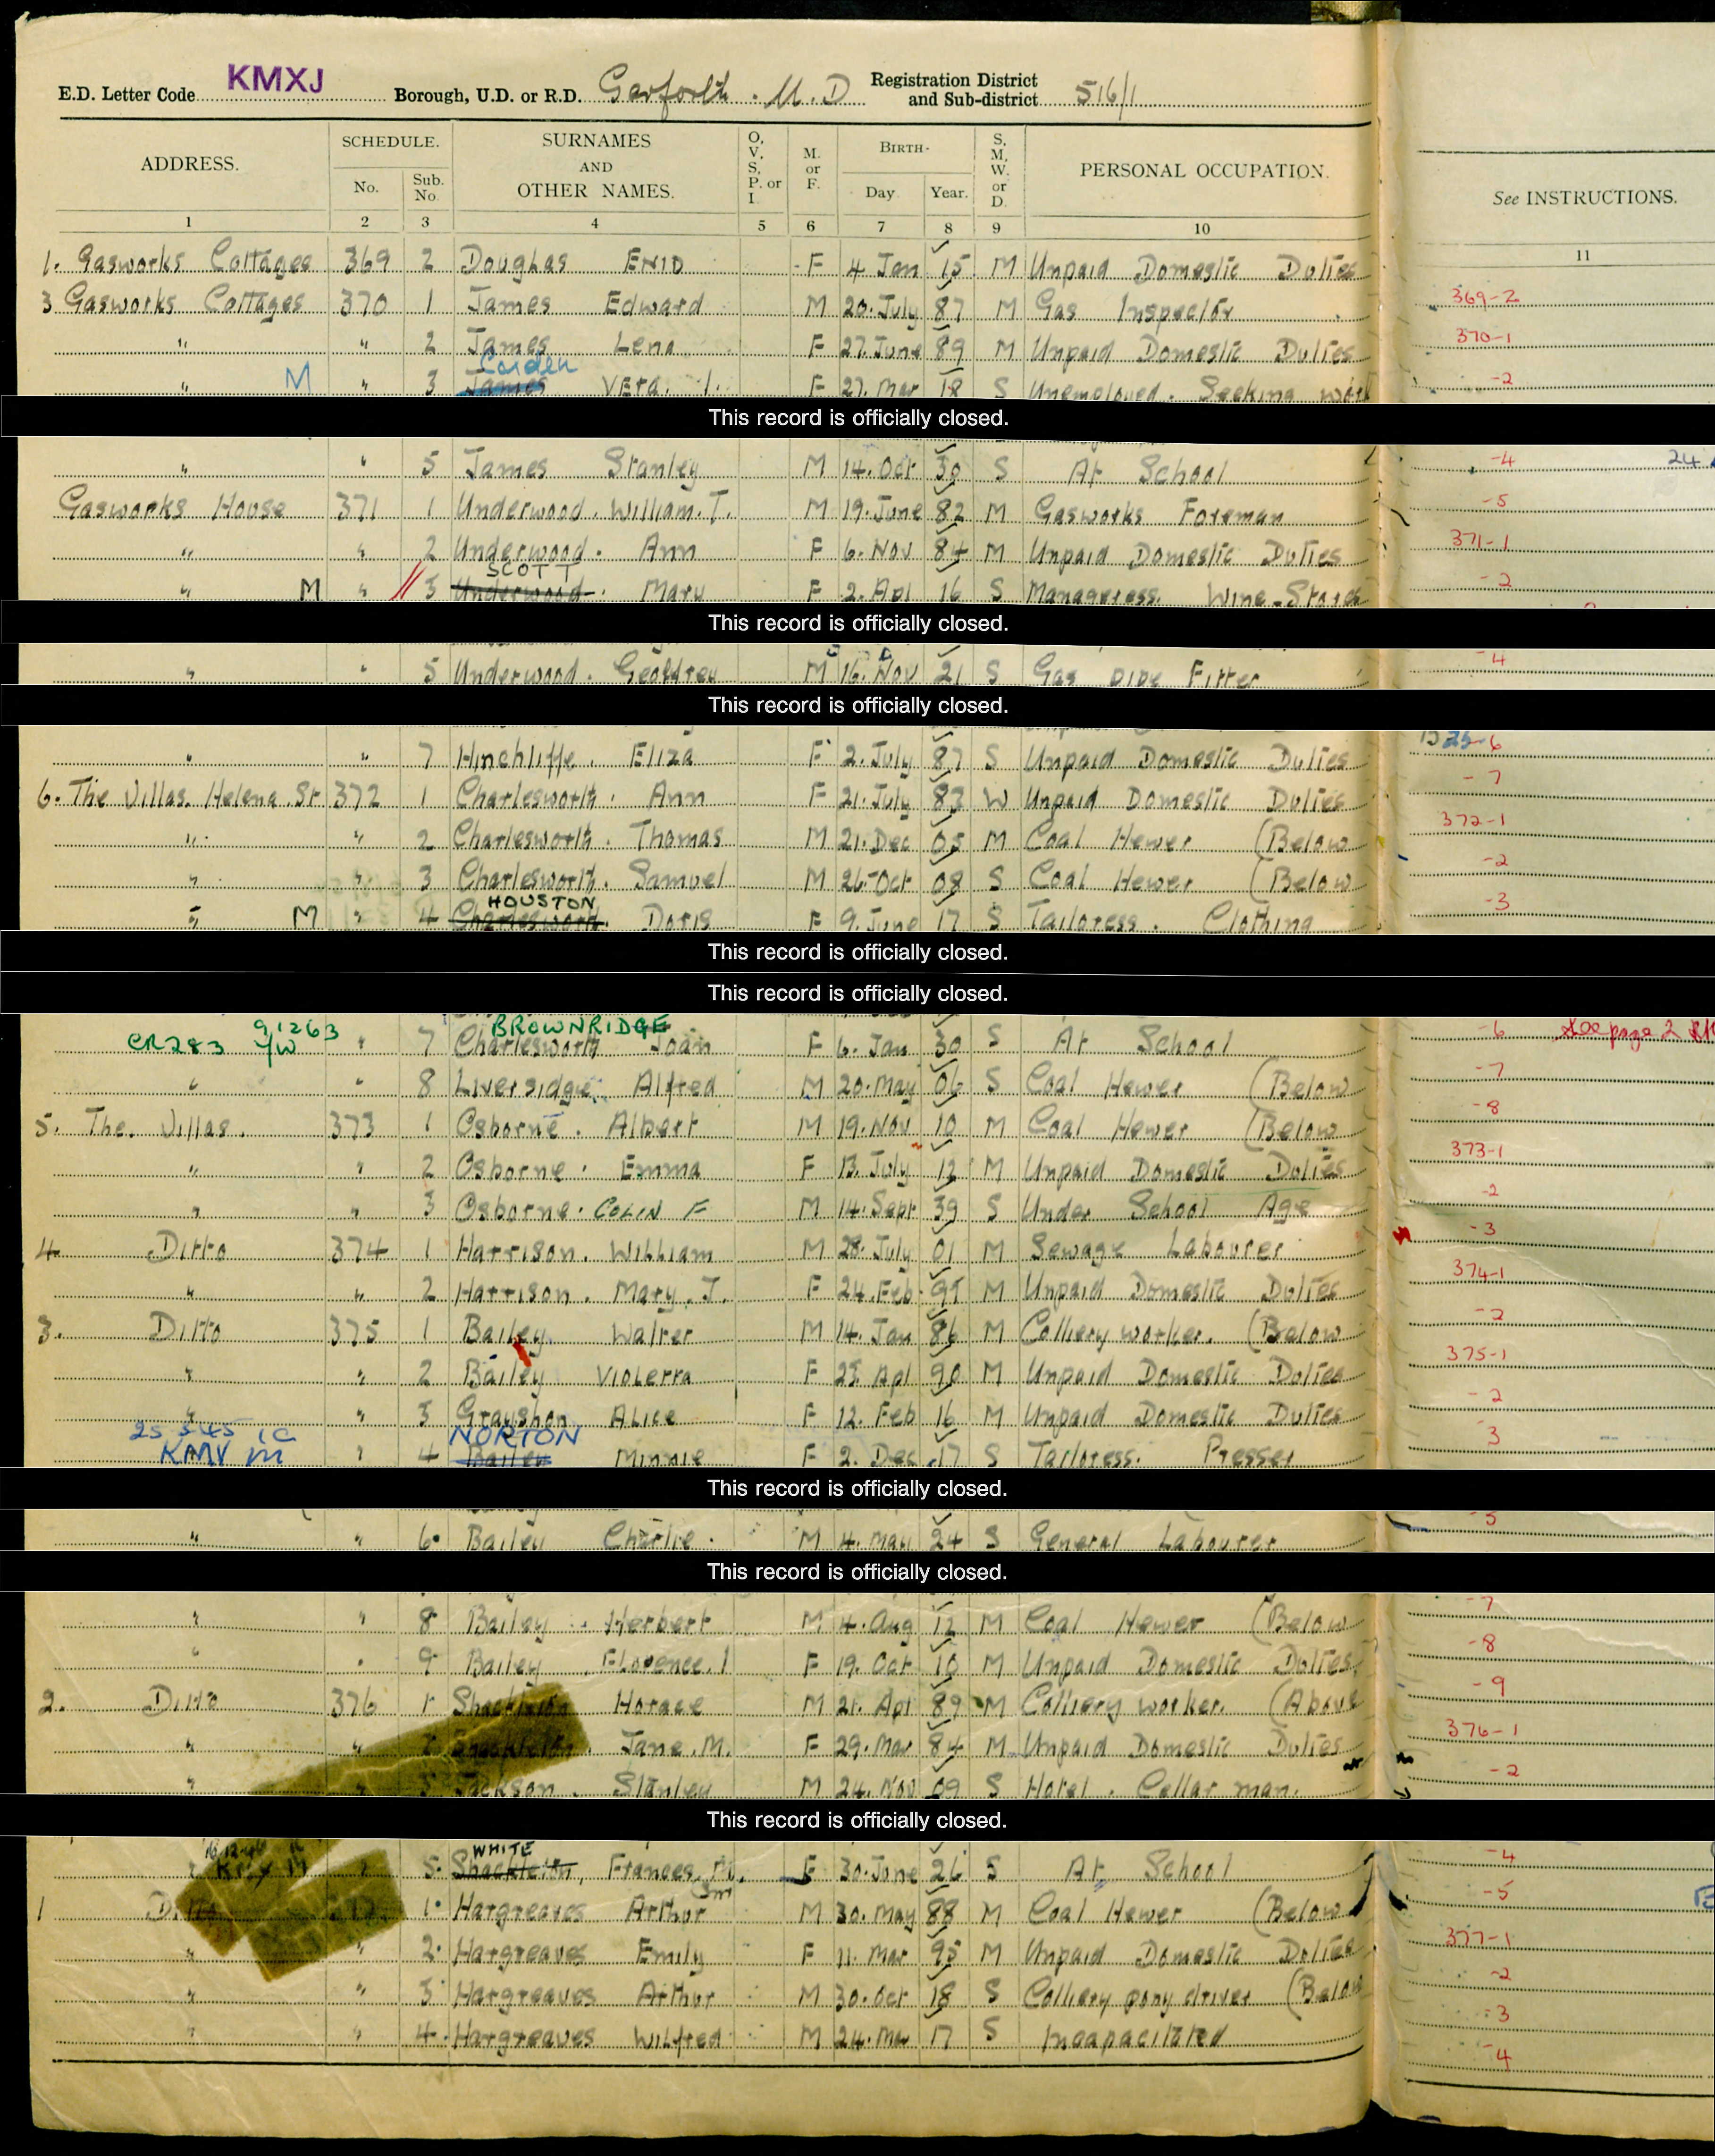 E.D. Letter Code KMXJ Borough, U.D. or R.D. Garforth . U. D Registration District and Sub-district 516/1
ADDRESS. SCHEDULE. No. Sub. No. SURNAMES AND OTHER NAMES. O, V, S, P. or I. M. or F. BIRTH- Day. Year. S, M, W. or D. PERSONAL OCCUPATION. See INSTRUCTIONS.
1 2 3 4 5 6 7 8 9 10 11
1. Gasworks Cottages 369 2 Douglas ENID F 4 Jan 15 M Unpaid Domestic Duties
3 Gasworks Cottages 370 1 James Edward M 20. July 87 M Gas Inspector 369-2
" " 2 James Lena F 27. June 89 M Unpaid Domestic Duties 370-1
" M " 3 James Vera. I. F 27. Mar 18 S Unemployed. Seeking work -2
This record is officially closed.
" " 5 James Stanley M 14. Oct 30 S At School -4 24
Gasworks House 371 1 Underwood. William. T. M 19. June 82 M Gasworks Foreman -5
" " 2 Underwood. Ann F 6. Nov 84 M Unpaid Domestic Duties 371-1
SCOTT
" M " 3 Underwood. Mary F 2. Apl 16 S Manageress. Wine-Stores -2
This record is officially closed.
" " 5 Underwood. Geoffrey M 16. Nov 21 S Gas Pipe Fitter -4
This record is officially closed.
" " 7 Hinchliffe. Eliza F 2. July 87 S Unpaid Domestic Duties -6
6. The Villas. Helena. St 372 1 Charlesworth. Ann F 21. July 83 W Unpaid Domestic Duties -7
" " 2 Charlesworth. Thomas M 21. Dec 05 M Coal Hewer (Below 372-1
" " 3 Charlesworth. Samuel M 26. Oct 08 S Coal Hewer (Below -2
HOUSTON
" M " 4 Charlesworth. Doris F 9. June 17 S Tailoress. Clothing -3
This record is officially closed.
This record is officially closed.
BROWNRIDGE
CR283 9/1263 " 7 Charlesworth Joan F 6. Jan 30 S At School -6 See page 2
" " 8 Liversidge. Alfred M 20. May 06 S Coal Hewer (Below -7
5. The Villas. 373 1 Osborne. Albert M 19. Nov 10 M Coal Hewer (Below -8
" " 2 Osborne. Emma F 13. July 12 M Unpaid Domestic Duties 373-1
" " 3 Osborne. COLIN F M 14. Sept 39 S Under School Age -2
4 Ditto 374 1 Harrison. William M 28. July 01 M Sewage Labourer -3
" " 2 Harrison. Mary. J. F 24. Feb 95 M Unpaid Domestic Duties 374-1
3. Ditto 375 1 Bailey Walter M 14. Jan 86 M Colliery worker. (Below -2
" " 2 Bailey Violetta F 23. Apl 90 M Unpaid Domestic Duties 375-1
" " 3 Grayshon Alice F 12. Feb 16 M Unpaid Domestic Duties -2
NORTON
25 3 45 KMV M " 4 Bailey Minnie F 2. Dec 17 S Tailoress. Presser 3
This record is officially closed.
" " 6. Bailey Charlie. M 4. May 24 S General Labourer -5
This record is officially closed.
" " 8 Bailey. Herbert M 4. Aug 12 M Coal Hewer (Below -7
" " 9 Bailey Florence. I F 19. Oct 10 M Unpaid Domestic Duties -8
2. Ditto 376 1 Shackleton Horace M 21. Apl 89 M Colliery worker. (Above -9
" " 2 Shackleton. Jane. M. F 29. Mar 84 M Unpaid Domestic Duties 376-1
" " 3 Jackson. Stanley M 24. Nov 09 S Hotel. Cellar man. -2
This record is officially closed.
WHITE
" " 5. Shackleton, Frances. M. F 30. June 26 S At School -4
1 Ditto 1. Hargreaves Arthur Snr M 30. May 88 M Coal Hewer (Below -5
" " 2. Hargreaves Emily F 11. Mar 95 M Unpaid Domestic Duties 377-1
" " 3 Hargreaves Arthur M 30. Oct 18 S Colliery pony driver (Below -2
" " 4. Hargreaves Wilfred M 24. Mar 17 S Incapacitated -3
-4